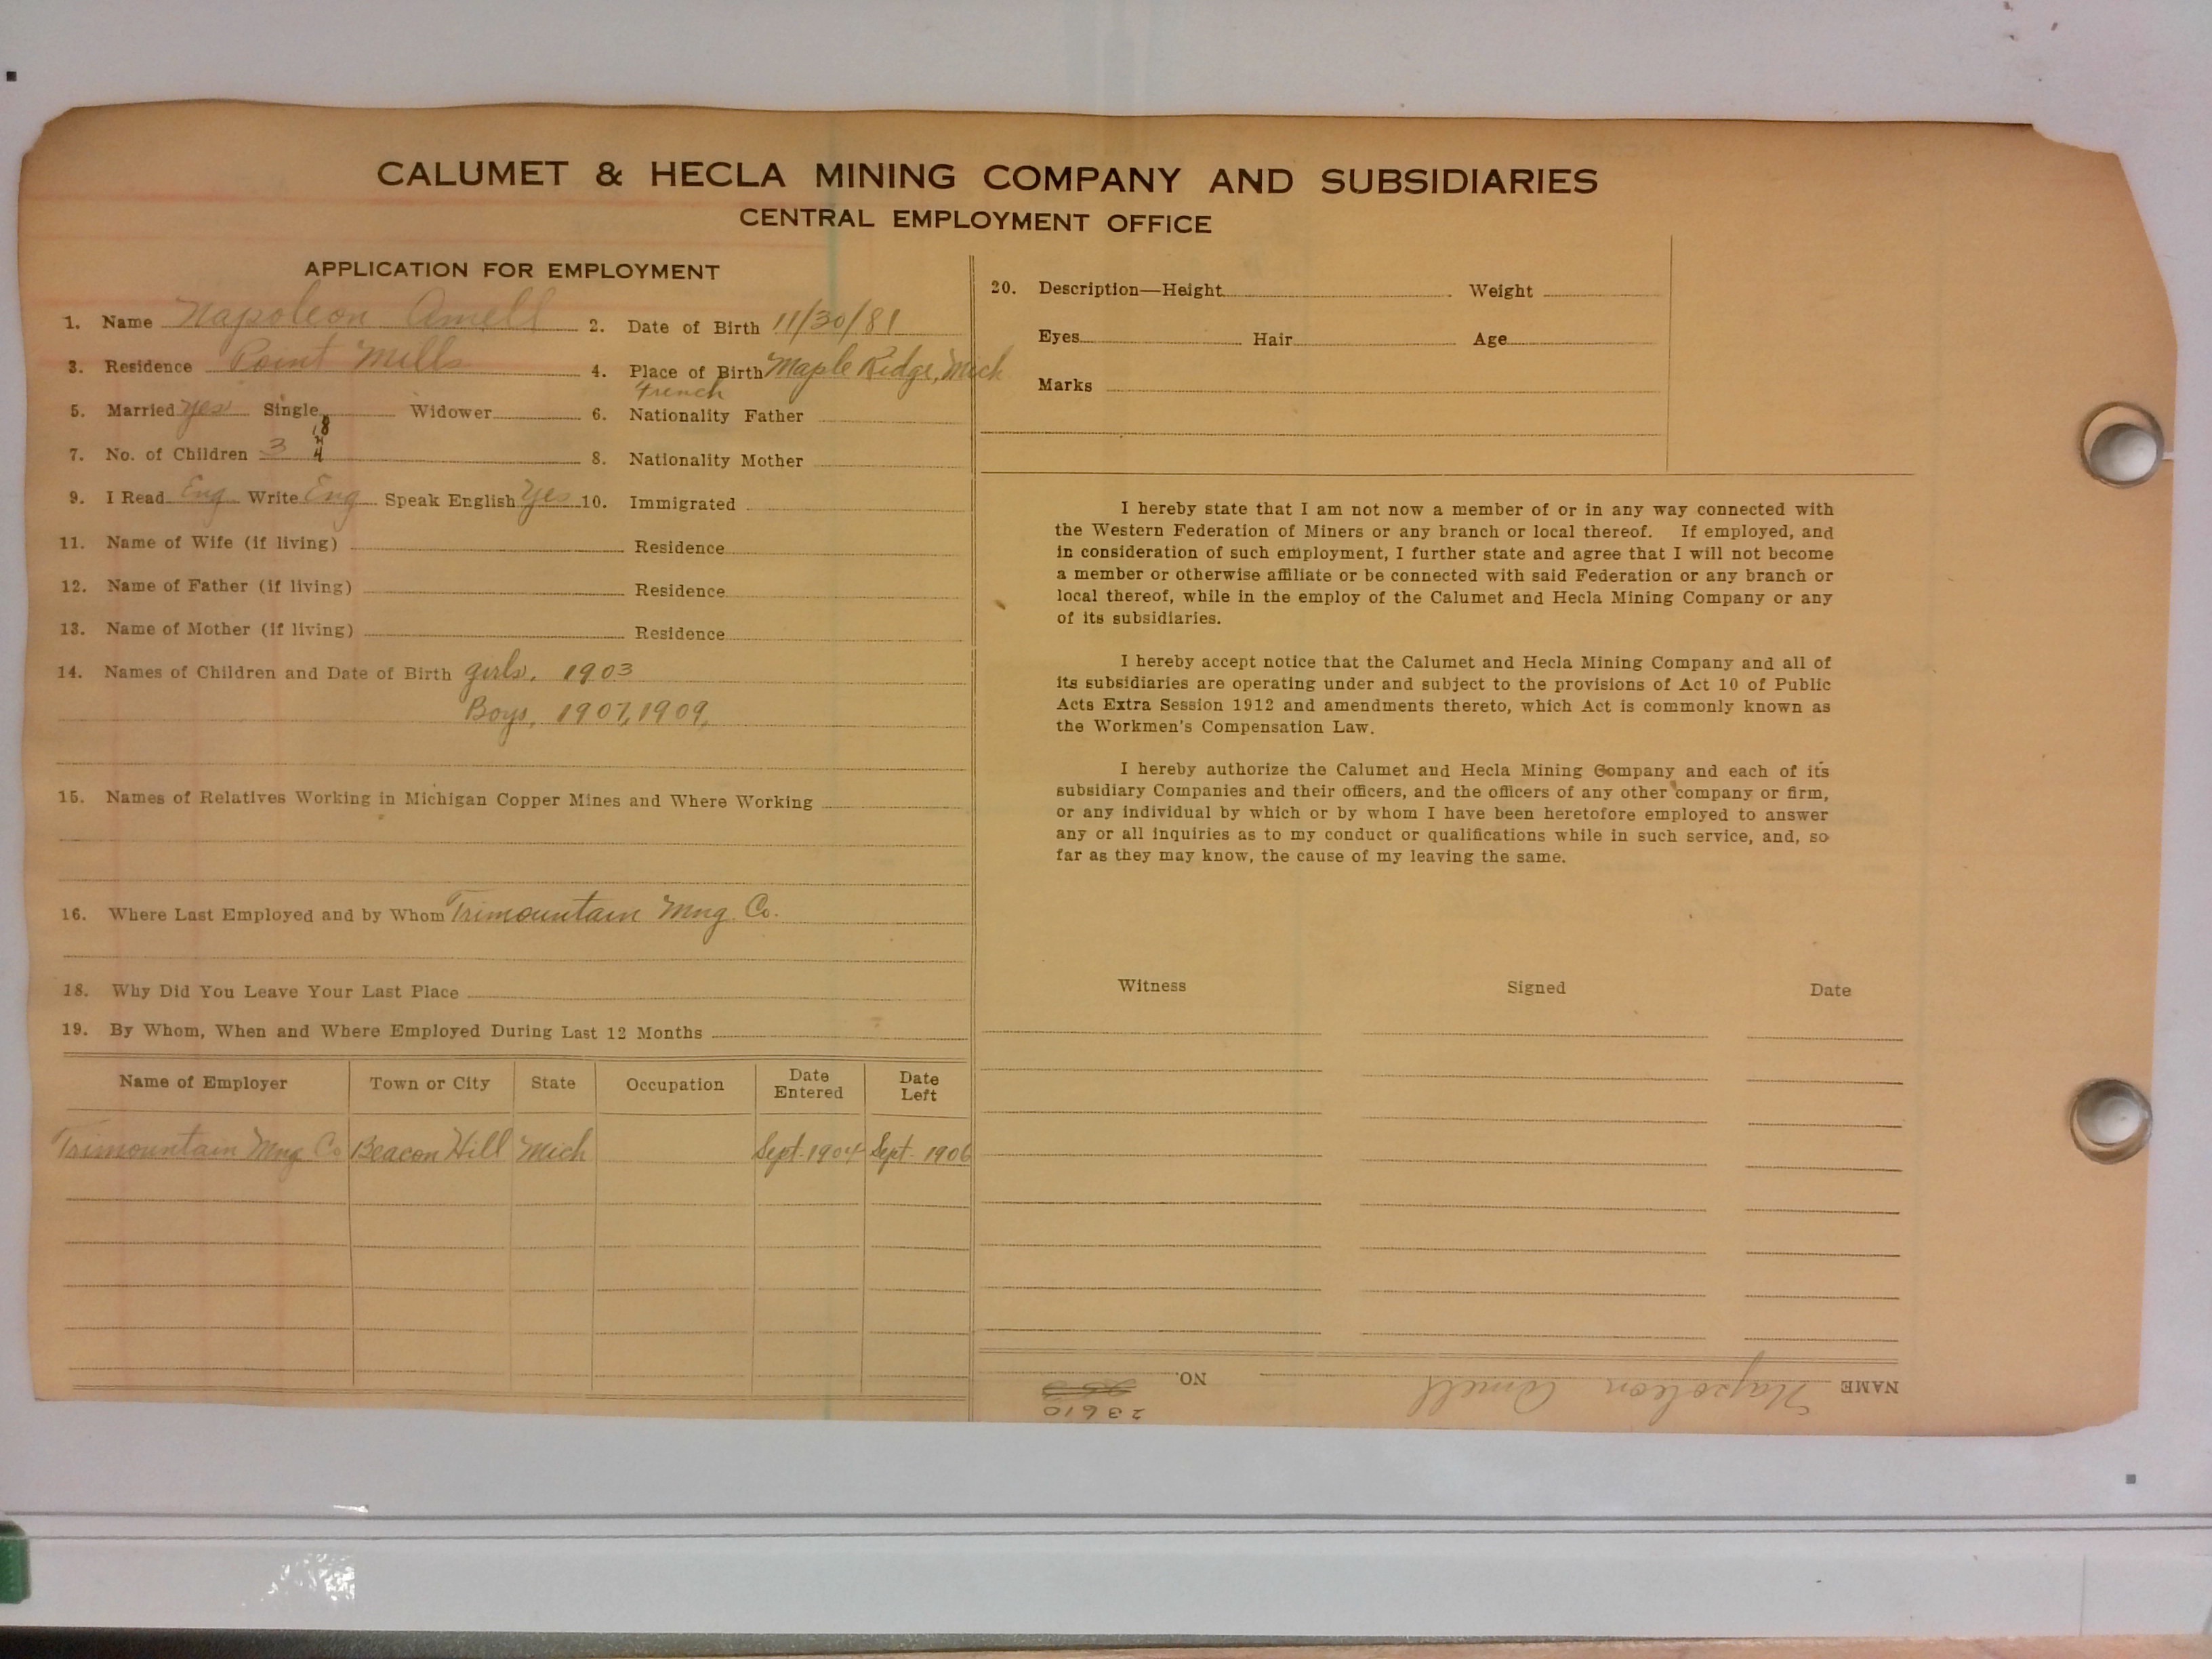 CALUMET & HECLA MINING COMPANY AND SUBSIDIARIES
CENTRAL EMPLOYMENT OFFICE
APPLICATION FOR EMPLOYMENT
1. Name Napoleon Amell 2. Date of Birth 11/30/81
3. Residence Point Mills 4. Place of Birth Maple Ridge, Mich
French
5. Married yes Single Widower 6. Nationality Father
7. No. of Children 3 4 8. Nationality Mother
9. I Read Eng Write Eng Speak English Yes 10. Immigrated
11. Name of Wife (if living) Residence
12. Name of Father (if living) Residence
13. Name of Mother (if living) Residence
14. Names of Children and Date of Birth girls. 1903
Boys, 1907, 1909,
15. Names of Relatives Working in Michigan Copper Mines and Where Working
16. Where Last Employed and by Whom Trimountain Mng. Co.
18. Why Did You Leave Your Last Place
19. By Whom, When and Where Employed During Last 12 Months
Name of Employer Town or City State Occupation Date Entered Date Left
Trimountain Mng Co Beacon Hill Mich Sept. 1904 Sept. 1906
20. Description—Height Weight
Eyes Hair Age
Marks
I hereby state that I am not now a member of or in any way connected with
the Western Federation of Miners or any branch or local thereof. If employed, and
in consideration of such employment, I further state and agree that I will not become
a member or otherwise affiliate or be connected with said Federation or any branch or
local thereof, while in the employ of the Calumet and Hecla Mining Company or any
of its subsidiaries.
I hereby accept notice that the Calumet and Hecla Mining Company and all of
its subsidiaries are operating under and subject to the provisions of Act 10 of Public
Acts Extra Session 1912 and amendments thereto, which Act is commonly known as
the Workmen's Compensation Law.
I hereby authorize the Calumet and Hecla Mining Company and each of its
subsidiary Companies and their officers, and the officers of any other company or firm,
or any individual by which or by whom I have been heretofore employed to answer
any or all inquiries as to my conduct or qualifications while in such service, and, so
far as they may know, the cause of my leaving the same.
Witness Signed Date
NAME Napoleon Amell NO.
23610